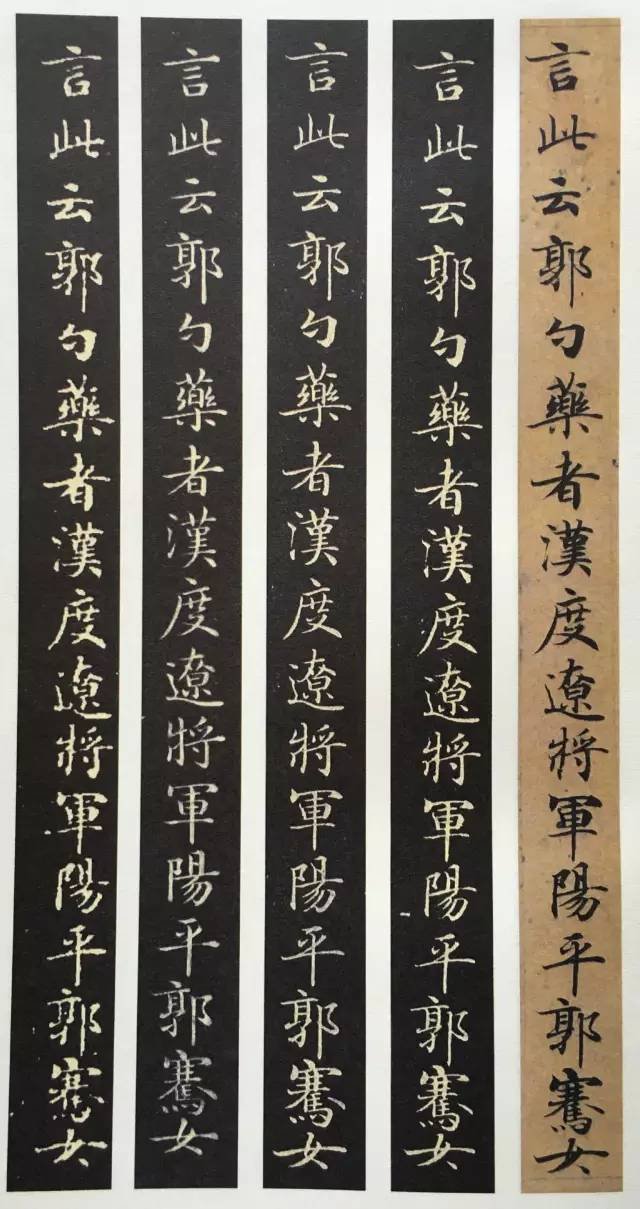 言此云郭勺藥者漢度遼將軍陽平郭騫女
言此云郭勺藥者漢度遼將軍陽平郭騫女
言此云郭勺藥者漢度遼將軍陽平郭騫女
言此云郭勺藥者漢度遼將軍陽平郭騫女
言此云郭勺藥者漢度遼將軍陽平郭騫女